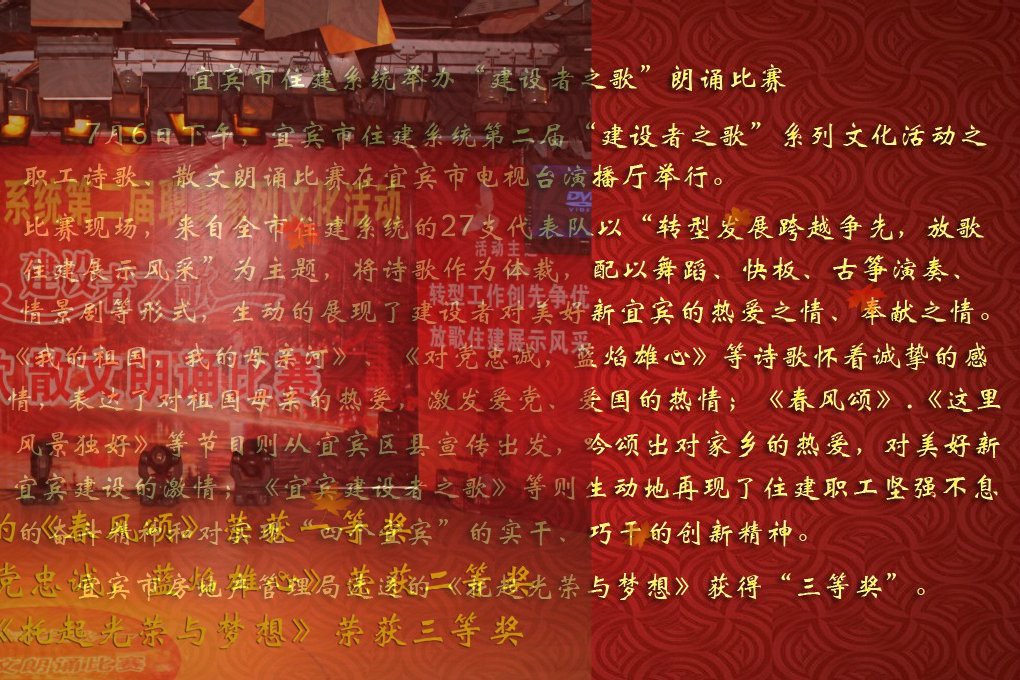 宜宾市住建系统举办“建设者之歌”朗诵比赛
7月6日下午，宜宾市住建系统第二届“建设者之歌”系列文化活动之
职工诗歌、散文朗诵比赛在宜宾市电视台演播厅举行。
比赛现场，来自全市住建系统的27支代表队以“转型发展跨越争先，放歌
住建展示风采”为主题，将诗歌作为体裁，配以舞蹈、快板、古筝演奏、
情景剧等形式，生动的展现了建设者对美好新宜宾的热爱之情、奉献之情。
《我的祖国 我的母亲河》、《对党忠诚，蓝焰雄心》等诗歌怀着诚挚的感
情，表达了对祖国母亲的热爱，激发爱党、爱国的热情；《春风颂》.《这里
风景独好》等节目则从宜宾区县宣传出发，吟颂出对家乡的热爱，对美好新
宜宾建设的激情；《宜宾建设者之歌》等则生动地再现了住建职工坚强不息
的奋斗精神和对实现“四个宜宾”的实干、巧干的创新精神。
宜宾市房地产管理局选送的《托起光荣与梦想》获得“三等奖”。
系统第二届职工系列文化活动
活动主
转型工作创先争优
放歌住建展示风采
散文朗诵比赛
的《春风颂》荣获一等奖
党忠诚 蓝焰雄心》荣获二等奖
《托起光荣与梦想》荣获三等奖
文朗诵比赛